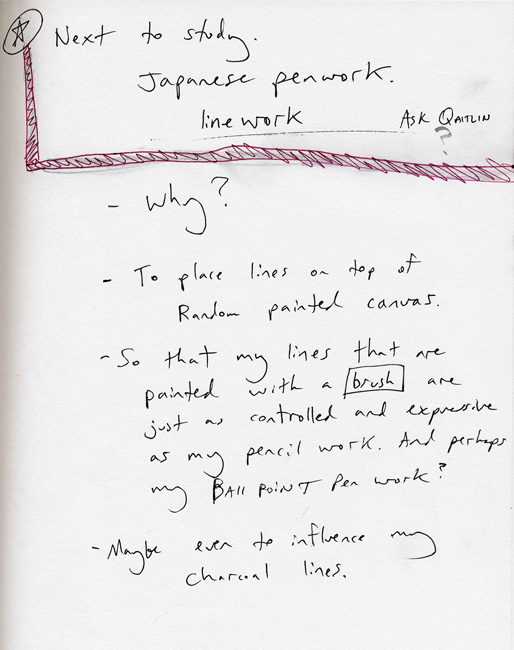 Next to study.
Japanese penwork.
linework
Ask Qaitlin
?
- Why?
- To place lines on top of
Random painted canvas.
- So that my lines that are
painted with a brush are
just as controlled and expressive
as my pencil work. And perhaps
my Ball Point Pen work?
- Maybe even to influence my
charcoal lines.